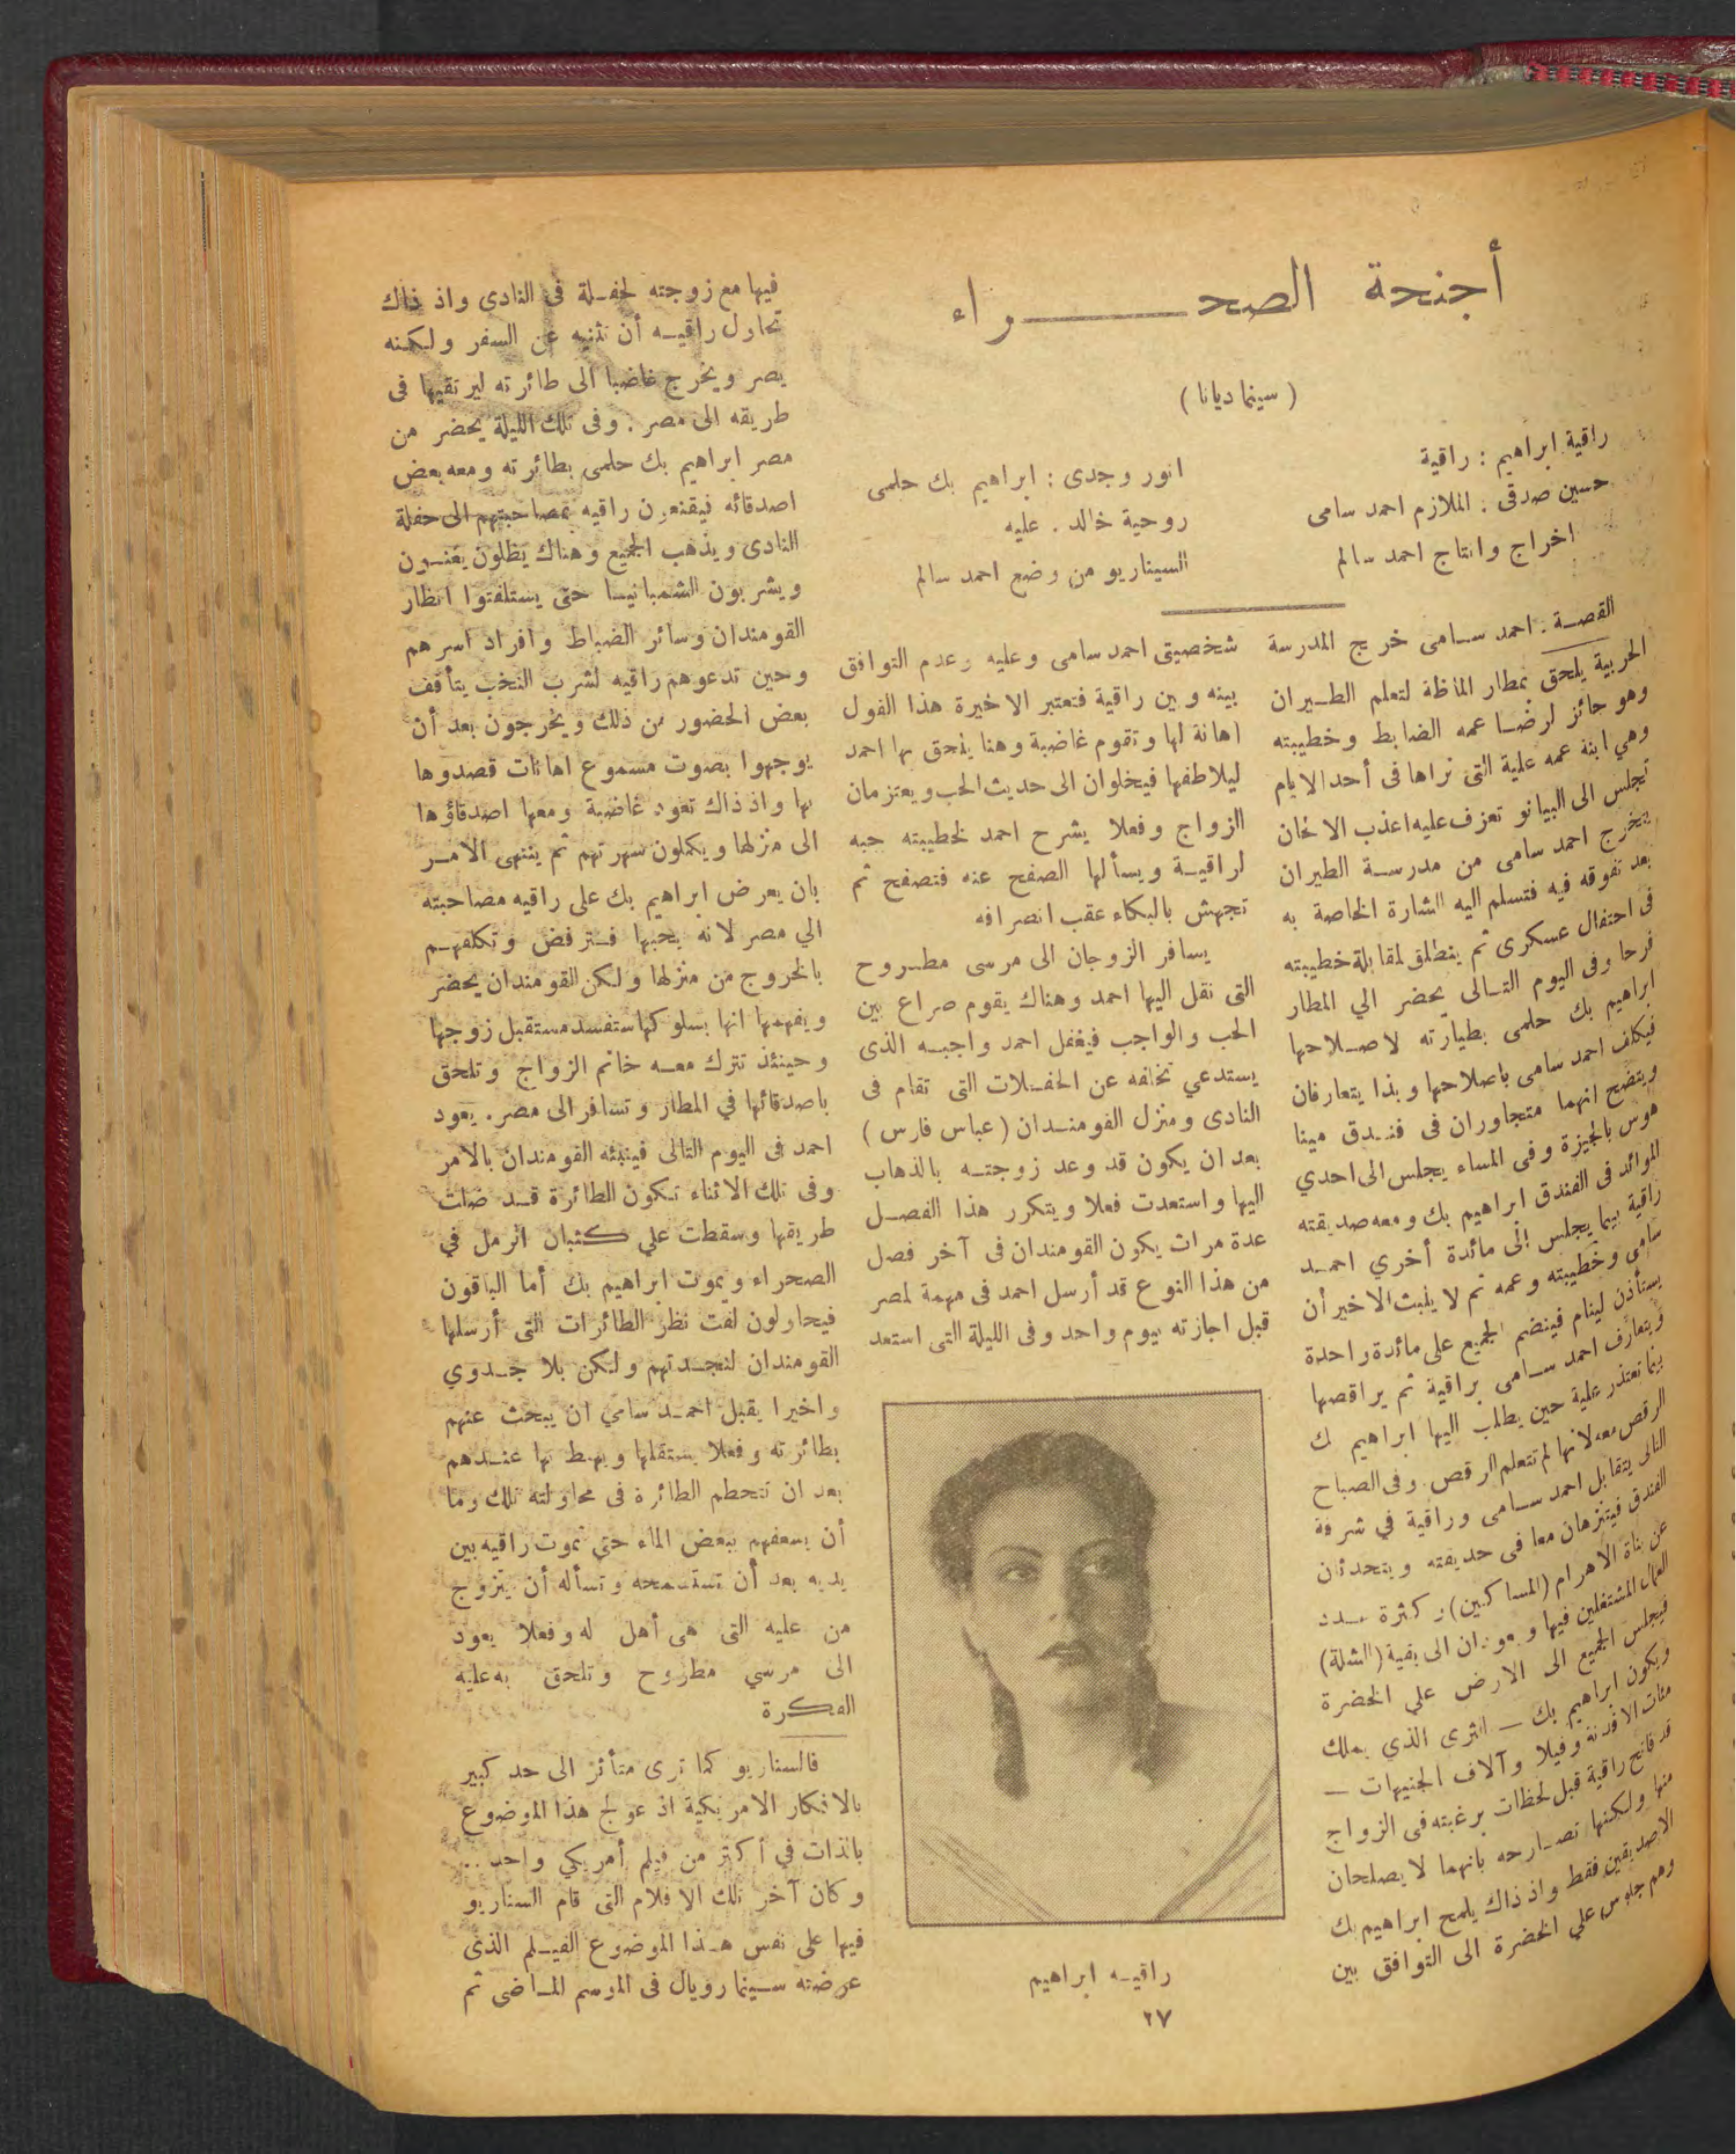 أجنحة الصحـــراء
( سينما ديانا )
راقية ابراهيم : راقية
حسين صدقى : الملازم احمد سامى
اخراج وانتاج احمد سالم
انور وجدى : ابراهيم بك حلمى
روحية خالد . عليه
السيناريو من وضع احمد سالم
القصة : احمد سامى خريج المدرسة
الحربية يلحق بمطار الماظة لتعلم الطيران
وهو حائز لرضا عمه الضابط وخطيبته
وهي ابنة عمه علية التى نراها فى أحد الايام
تجلس الى البيانو تعزف عليه اعذب الالحان
يتخرج احمد سامى من مدرسة الطيران
بعد تفوقه فيه فتسلم اليه الشارة الخاصة به
فى احتفال عسكرى ثم ينطلق لمقابلة خطيبته
فرحا وفى اليوم التالى يحضر الي المطار
ابراهيم بك حلمى بطيارته لاصلاحها
فيكلف احمد سامى باصلاحها وبذا يتعارفان
ويتضح انهما متجاوران فى فندق مينا
هوس بالجيزة وفى المساء يجلس الى احدي
الموائد فى الفندق ابراهيم بك ومعه صديقته
راقية بيما يجلس الى مائدة أخري احمد
سامى وخطيبته وعمه ثم لا يلبث الاخير أن
يستأذن لينام فينضم الجميع على مائدة واحدة
ويتعارف احمد سامى براقية ثم يراقصها
بينما تعتذر علية حين يطلب اليها ابراهيم بك
الرقص معه لانها لم تتعلم الرقص . وفى الصباح
التالى يتقابل احمد سامى وراقية في شرفة
الفندق فيتنزهان معا فى حديقته ويتحدثان
عن بناة الاهرام (المساكين) وكثرة عدد
العمال المشتغلين فيها ويعودان الى بقية (الشلة)
فيجلس الجميع الى الارض علي الخضرة
ويكون ابراهيم بك — الثرى الذي يملك
مئات الافدنة وفيلا وآلاف الجنيهات —
قد فاتح راقية قبل لحظات برغبته فى الزواج
منها ولكنها تصارحه بانهما لا يصلحان
الا صديقين فقط واذ ذاك يلمح ابراهيم بك
وهم جلوس علي الخضرة الى التوافق بين
شخصيتى احمد سامى وعليه وعدم التوافق
بينه وبين راقية فتعتبر الاخيرة هذا القول
اهانة لها وتقوم غاضبة وهنا يلحق بها احمد
ليلاطفها فيخلوان الى حديث الحب ويعتزمان
الزواج وفعلا يشرح احمد لخطيبته حبه
لراقية ويسألها الصفح عنه فتصفح ثم
تجهش بالبكاء عقب انصرافه
يسافر الزوجان الى مرسى مطروح
التى نقل اليها احمد وهناك يقوم صراع بين
الحب والواجب فيغفل احمد واجبه الذى
يستدعي تخلفه عن الحفلات التى تقام فى
النادى ومنزل القومندان ( عباس فارس )
بعد ان يكون قد وعد زوجته بالذهاب
اليها واستعدت فعلا ويتكرر هذا الفصل
عدة مرات يكون القومندان فى آخر فصل
من هذا النوع قد أرسل احمد فى مهمة لمصر
قبل اجازته بيوم واحد وفى الليلة التى استعد
راقيه ابراهيم
فيها مع زوجته لحفلة فى النادى واذ ذاك
تحاول راقيه أن تثنيه عن السفر ولكنه
يصر ويخرج غاضبا الى طائرته ليرتقيها فى
طريقه الى مصر . وفى تلك الليلة يحضر من
مصر ابراهيم بك حلمى بطائرته ومعه بعض
اصدقائه فيقنعون راقيه بمصاحبتهم الى حفلة
النادى ويذهب الجميع وهناك يظلون يغنون
ويشربون الشمبانيا حتى يستلفتوا انظار
القومندان وسائر الضباط وافراد اسرهم
وحين تدعوهم راقيه لشرب النخب يتأفف
بعض الحضور من ذلك ويخرجون بعد أن
يوجهوا بصوت مسموع اهانات قصدوها
بها واذ ذاك تعود غاضبة ومعها اصدقاؤها
الى منزلها ويكملون سهرتهم ثم ينتهى الامر
بان يعرض ابراهيم بك على راقيه مصاحبته
الي مصر لانه يحبها فترفض وتكلفهم
بالخروج من منزلها ولكن القومندان يحضر
ويفهمها انها بسلوكها ستفسد مستقبل زوجها
وحينئذ تترك معه خاتم الزواج وتلحق
باصدقائها في المطار وتسافر الى مصر . يعود
احمد فى اليوم التالى فينبئه القومندان بالامر
وفى تلك الاثناء تكون الطائرة قد ضلت
طريقها وسقطت علي كثبان الرمل في
الصحراء ويموت ابراهيم بك أما الباقون
فيحاولون لفت نظر الطائرات التى أرسلها
القومندان لنجدتهم ولكن بلا جدوي
واخيرا يقبل احمد سامي ان يبحث عنهم
بطائرته وفعلا يستقلها ويهبط بها عندهم
بعد ان تتحطم الطائرة فى محاولته تلك وما
أن يسعفهم ببعض الماء حتى تموت راقيه بين
يديه بعد أن تستسمحه وتسأله أن يتزوج
من عليه التى هى أهل له وفعلا يعود
الى مرسي مطروح وتلحق به عليه
الفكرة
فالسناريو كما ترى متأثر الى حد كبير
بالافكار الامريكية اذ عولج هذا الموضوع
بالذات في أكثر من فيلم أمريكي واحد ..
وكان آخر تلك الافلام التى قام السناريو
فيها على نفس هذا الموضوع الفيلم الذى
عرضته سينما رويال فى الموسم الماضى ثم
٢٧